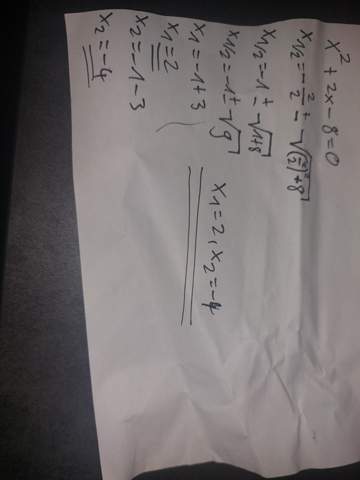 x² + 2x - 8 = 0
x1/2 = -2/2 ± √((2/2)² + 8)
x1/2 = -1 ± √1+8
x1/2 = -1 ± √9
x1 = -1 + 3
x1 = 2
x2 = -1 - 3
x2 = -4
x1 = 2, x2 = -4